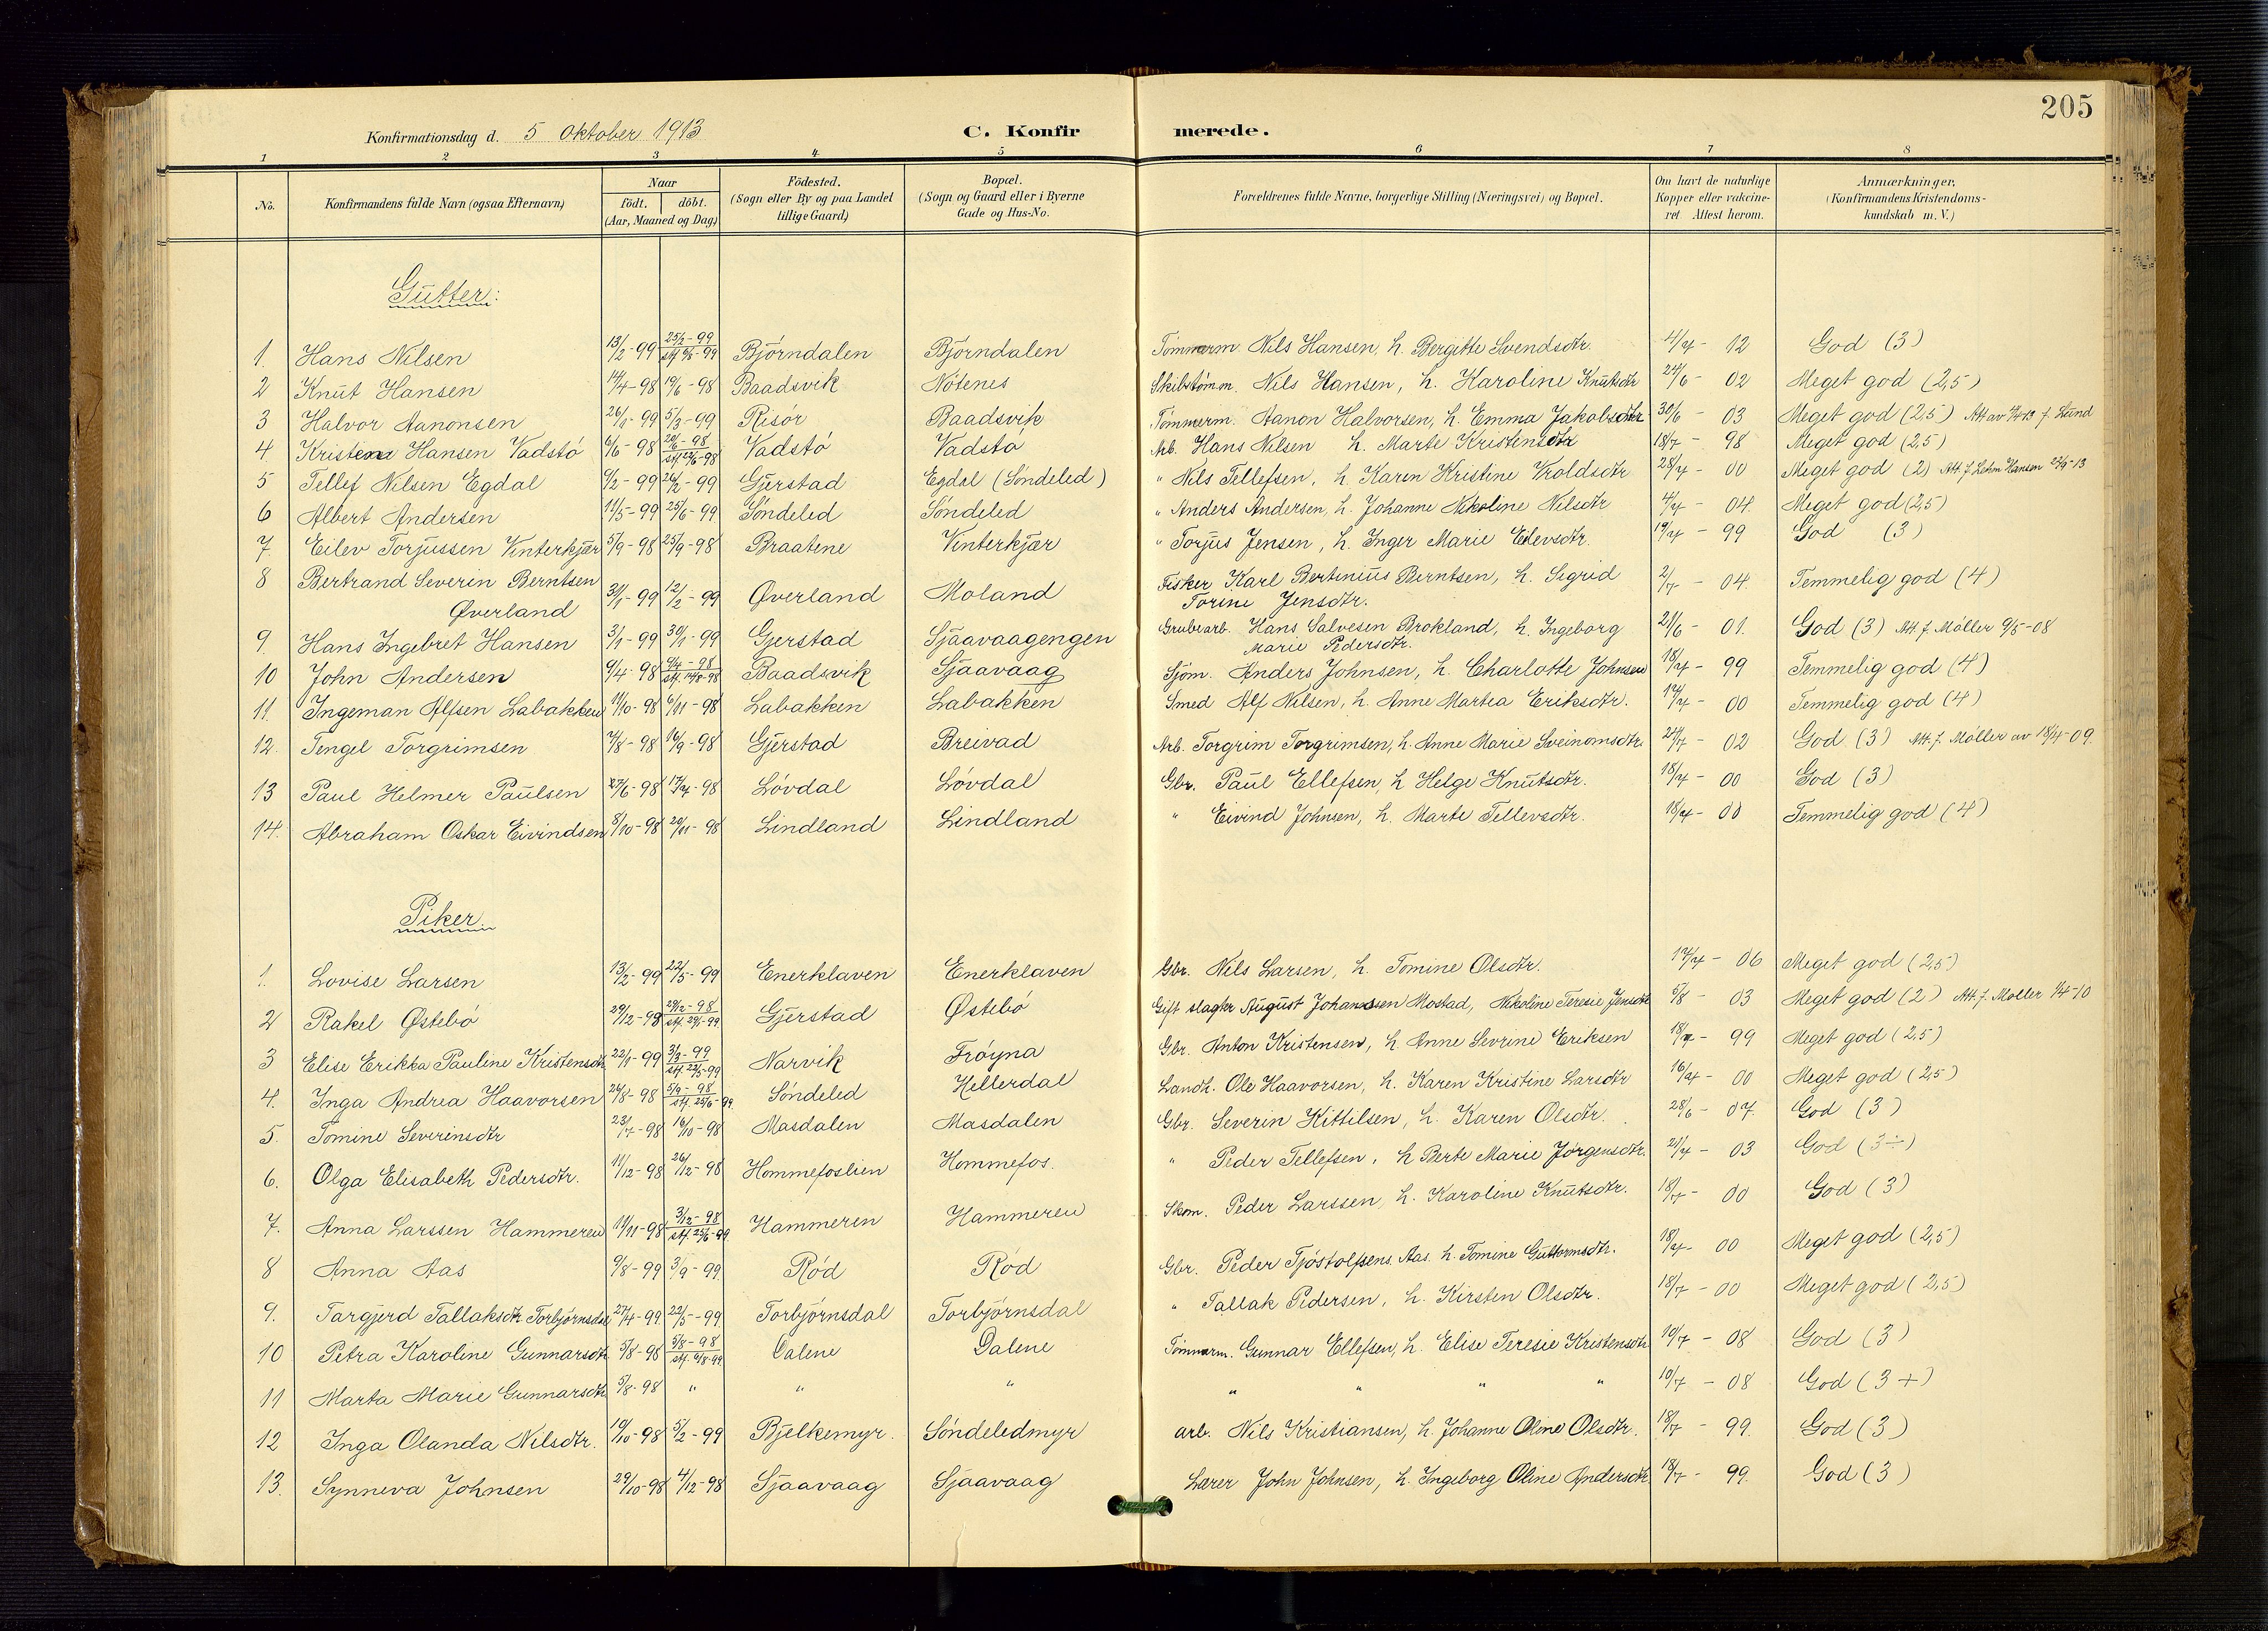 205
Konfirmationsdag d. 5 Oktober 1913 C. Konfirmerede.
1 2 3 4 5 6 7 8
No. | Konfirmandens fulde Navn (ogsaa Efternavn) | Naar födt. döbt. (Aar, Maaned og Dag) | Födested. (Sogn eller By og paa Landet tillige Gaard) | Bopæl. (Sogn og Gaard eller i Byerne Gade og Hus-No. | Forældrenes fulde Navne, borgerlige Stilling (Næringsvei) og Bopæl. | Om havt de naturlige Kopper eller vakcineret. Attest herom. | Anmærkninger, (Konfirmandens Kristendomskundskab m. V.)
Gutter:
1. Hans Nilsen 13/2-99 25/2-99 Björndalen Björndalen Tömmerm. Nils Hansen, h. Bergitte Svendsdtr. 4/7 - 12 God (3)
2 Knut Hansen 14/4-98 19/6-98 Baadsvik Nötenes Skibstömm. Nils Hansen, h. Karoline Knutsdtr 24/6 - 02 Meget god (2,5)
3 Halvor Aanonsen 26/1-99 5/3-99 Risör Baadsvik Tömmerm. Aanon Halvorsen, h. Emma Jakobsdtr 30/6 - 03 Meget god (2,5)
4 Kristen Hansen Vadstö 6/6-98 Vadstö Vadstö Arb. Hans Nilsen h. Marte Kristensdtr 18/7 - 98 Meget god (2,5)
5 Tellef Nilsen Egdal 6/2-99 26/2-99 Gjerstad Egdal (Söndeled) " Nils Tellefsen, h. Karen Kristine Kroldsdtr 28/7 - 00 Meget god (2)
6 Albert Andersen 11/5-99 25/6-99 Söndeled Söndeled " Anders Andersen, h. Johanne Nikoline Nilsdtr 4/7 - 04. Meget god (2,5)
7. Eilev Torjussen Vinterkjær 5/9-98 25/9-98 Braatene Vinterkjær " Torjus Jensen, h. Inger Marie Eilevsdtr. 19/7 - 99 God (3)
8 Bertrand Severin Berntsen Øverland 31/1-99 12/2-99 Øverland Moland Fisker Karl Bertinius Berntsen, h. Sigrid Torine Jensdtr. 2/7 - 04. Temmelig god (4)
9. Hans Ingebret Hansen 3/1-99 30/1-99 Gjerstad Sjaavaagengen Grubearb. Hans Salvesen Brokland, h. Ingeborg Marie Pedersdtr. 21/6 - 01. God (3) Att. f. Möller 9/5-08
10 John Andersen 9/4-98 Baadsvik Sjaavaag Sjöm. Anders Johnsen, h. Charlotte Johnsen 18/7 - 99 Temmelig god (4)
11. Ingeman Alfsen Labakken 11/10-98 6/11-98 Labakken Labakken Smed Alf Nilsen, h. Anne Martea Eriksdtr. 17/7 - 00 Temmelig god (4)
12. Tengel Torgrimsen 7/8-98 16/9-98 Gjerstad Breivad Arb. Torgrim Torgrimsen, h. Anne Marie Sveinomsdtr. 24/7 - 02 God (3) Att. f. Möller av 18/4-09.
13 Paul Helmer Paulsen 27/6-98 17/7-98 Lövdal Lövdal Gbr. Paul Ellefsen, h Helge Knutsdtr. 18/7 - 00 God (3)
14. Abraham Oskar Eivindsen 8/10-98 20/11-98 Lindland Lindland " Eivind Johnsen, h. Marte Tellevsdtr. 18/7 - 00 Temmelig god (4)
Piker.
1. Lovise Larsen 13/2-99 22/5-99 Enerklaven Enerklaven Gbr. Nils Larsen, h. Tomine Olsdtr. 17/7 - 06 Meget god (2,5)
2 Rakel Østebö 29/12-98 Gjerstad Østebö Gift slagter August Johanssen Mostad, Nikoline Teresie Jensdtr 5/8 - 03 Meget god (2) Att. f. Möller
3 Elise Erikka Pauline Kristensdtr 22/1-99 3/3-99 Narvik Fröyna Gbr. Anton Kristensen, h Anne Sevrine Eriksen 18/7 - 99 Meget god (2,5)
4. Inga Andrea Haavorsen 24/8-98 Söndeled Hellerdal Landh. Ole Haavorsen, h. Karen Kristine Larsdtr 16/7 - 00 Meget god (2,5)
5. Tomine Severinsdtr 23/7-98 16/10-98 Masdalen Masdalen Gbr. Severin Kittilsen, h. Karen Olsdtr. 28/6 - 07. God (3)
6. Olga Elisabeth Pedersdtr. 11/12-98 26/12-98 Hommefoslien Hommefos. " Peder Tellefsen, h Berte Marie Jörgensdtr. 21/7 - 03 God (3÷)
7. Anna Larssen Hammeren 11/11-98 3/12-98 Hammeren Hammeren Skom. Peder Larssen, h. Karoline Knutsdtr. 18/7 - 00 God (3)
8 Anna Aas 9/8-99 3/9-99 Röd Röd Gbr. Peder Tjöstolfsens Aas. h. Tomine Guttormsdtr. 18/7 - 00 Meget god (2,5)
9. Targjerd Tallaksdtr Torbjörnsdal 27/4-99 22/5-99 Torbjörnsdal Torbjörnsdal " Tallak Pedersen, h. Kirsten Olsdtr. 18/7 - 00 Meget god (2,5)
10 Petra Karoline Gunnarsdtr 5/8-98 Dalene Dalene Tömmerm. Gunnar Ellefsen, h. Elise Teresie Kristensdtr 10/7 - 08 God (3)
11 Marta Marie Gunnarsdtr 5/8-98 " " " " " " " 10/7 - 08 God (3+)
12 Inga Olanda Nilsdtr. 19/10-98 5/2-99 Bjelkemyr. Söndeledmyr arb. Nils Kristiansen, h. Johanne Oline Olsdtr. 18/7 - 99. God (3)
13. Synneva Johnsen 29/10-98 4/12-98 Sjaavaag Sjaavaag Lærer John Johnsen, h. Ingeborg Oline Andersdtr 18/7 - 99. God (3)